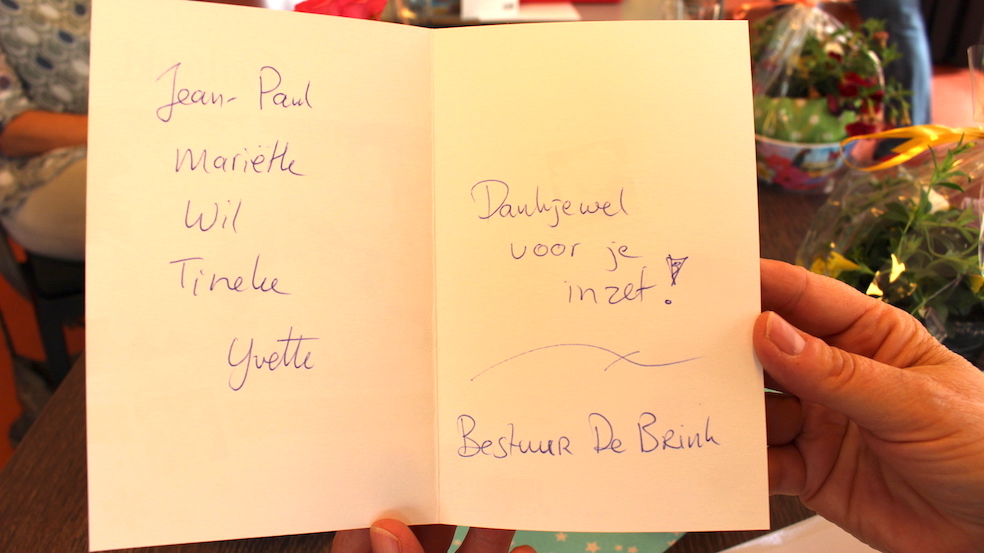 Jean-Paul
Mariëtte
Wil
Tineke
Yvette
Dankjewel
voor je
inzet!
Bestuur De Brink